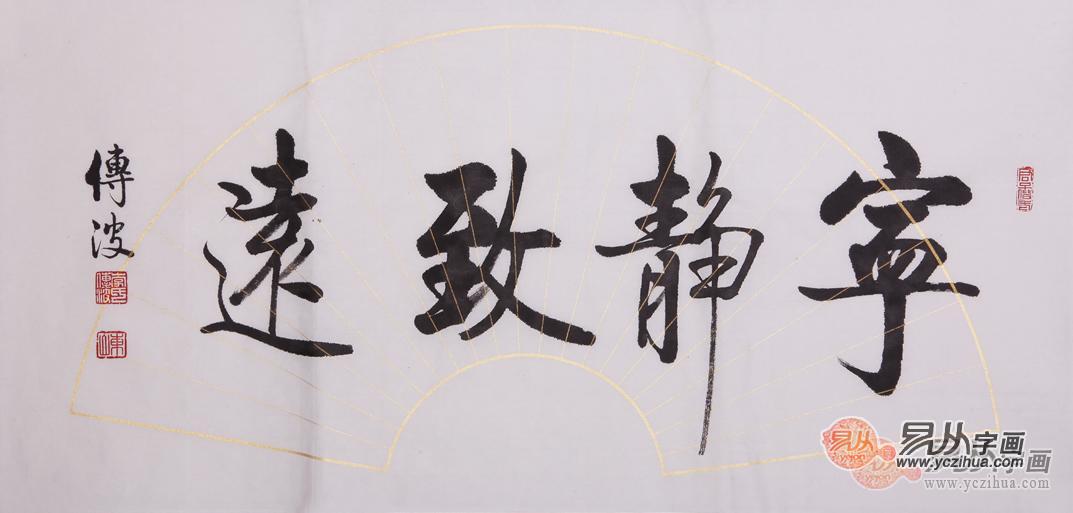 寧靜致遠
傅波
易从字画
www.yczihua.com
www.yczihua.com